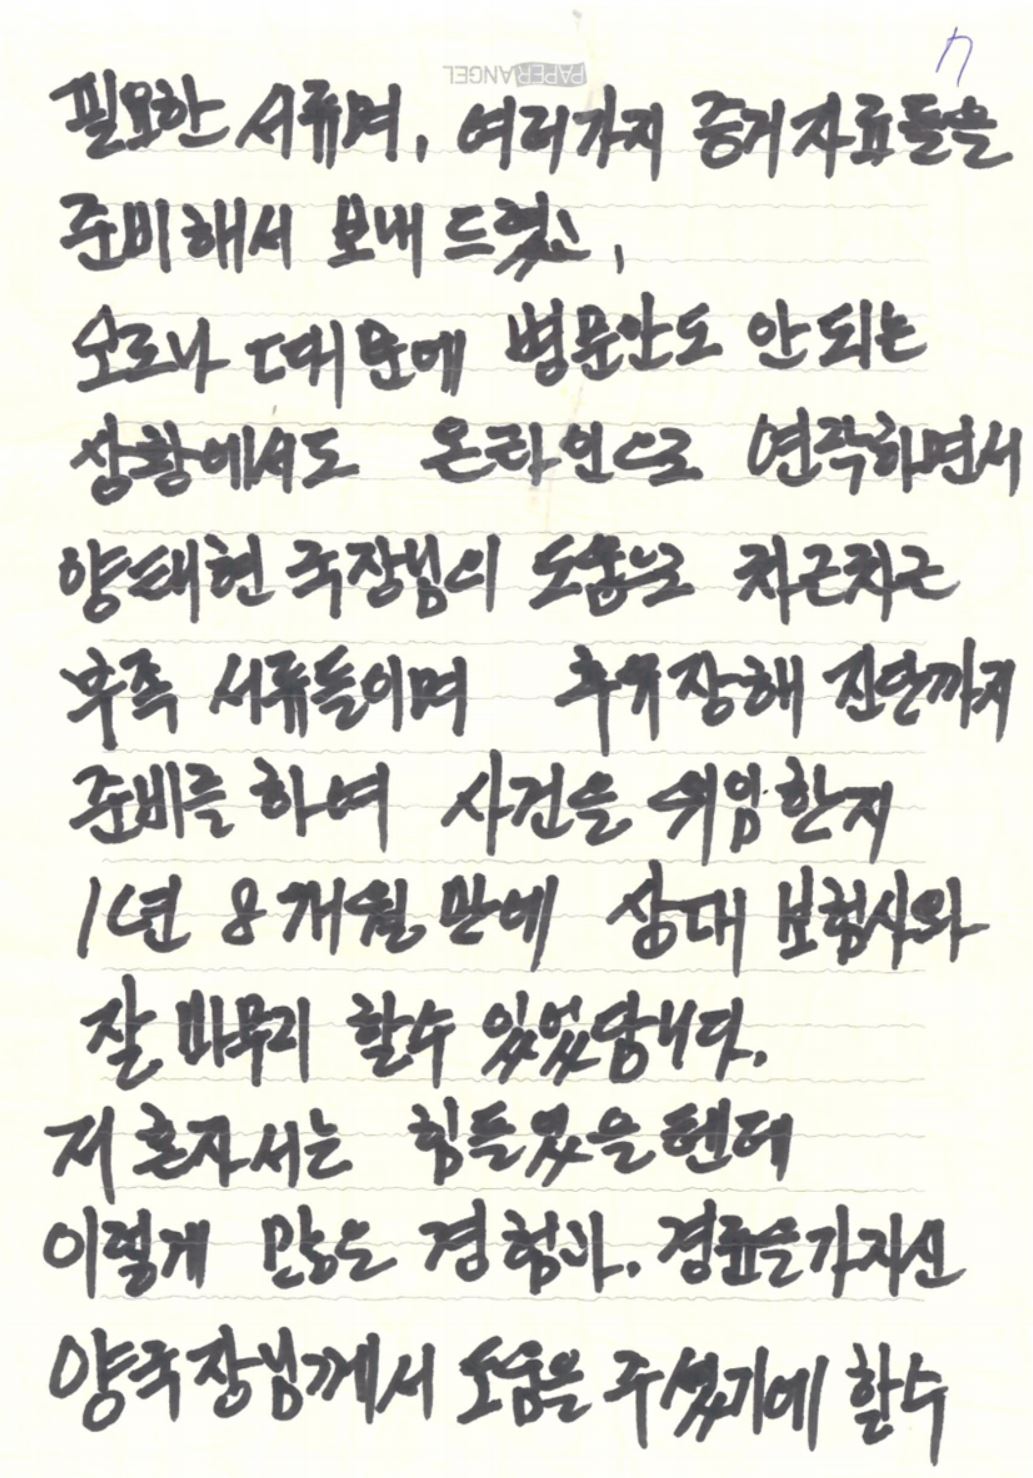 PAPER ANGEL
필요한 서류며, 여러가지 증거자료들을
준비해서 보내 드렸고,
코로나 때문에 병문안도 안되는
상황에서도 온라인으로 연락하면서
양태현 국장님의 도움으로 차근차근
부족 서류들이며 후유장해 진단까지
준비를 하여 사건을 위임한지
1년 8개월 만에 상대 보험사와
잘 마무리 할수 있었답니다.
저 혼자서는 힘들었을텐데
이렇게 많은 경험과. 경륜을가지신
양국장님께서 도움을 주셨기에 할수